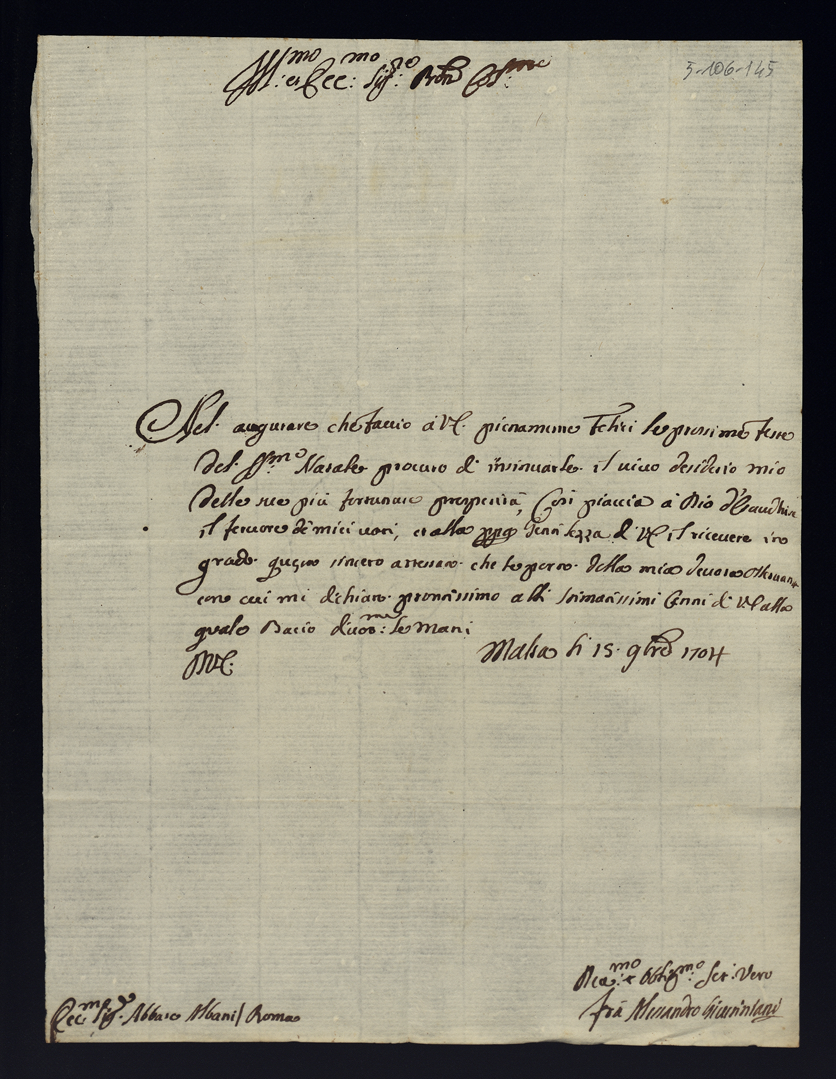 Ill:mo et Ecc:mo Sig:re Prōn Col:mo
5-106-145
Nel augurare che faccio à VE. pienamente Felici le prossime feste
del SS:mo Natale procuro di insinuarle il vivo desiderio mio
delle sue più fortunate prosperità, Così piaccia à Dio d'esaudire
il fervore de miei voti, et alla gentilezza di VE il ricevere in
grado questo sincero attestato che le porto della mia devota osservanza
con cui mi dichiaro prontissimo alli stimatissimi Cenni di VE alla
quale Bacio divot:me le Mani
DVE.
Malta li 15. 9bre 1704
Dev:mo et Oblig:mo Ser: Vero
frà Alessandro Giustiniani
Ecc:mo Sig:re Abbate Albani / Roma